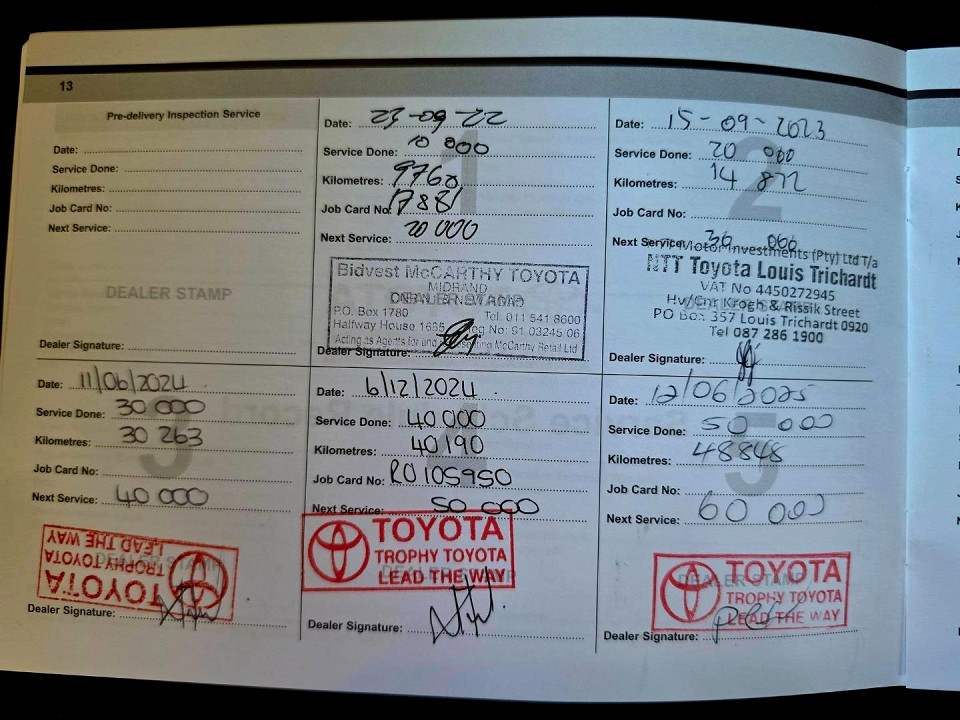 13
Pre-delivery Inspection Service
Date:
Service Done:
Kilometres:
Job Card No:
Next Service:
DEALER STAMP
Dealer Signature:
1
Date: 23-09-22
Service Done: 10 000
Kilometres: 9760
Job Card No: 17881
Next Service: 20 000
Bidvest McCARTHY TOYOTA
MIDRAND
P.O. Box 1780 Tel: 011 541 8600
Halfway House 1685 Reg No: 91 03245 06
Acting as Agents for and McCarthy Retail Ltd
Dealer Signature:
2
Date: 15-09-2023
Service Done: 20 000
Kilometres: 14 872
Job Card No:
Next Service: 30 000
Motor Investments (Pty) Ltd T/a
NTT Toyota Louis Trichardt
VAT No 4450272945
Hv/Cnr Krogh & Rissik Street
PO Box 357 Louis Trichardt 0920
Tel 087 286 1900
Dealer Signature:
3
Date: 11/06/2024
Service Done: 30 000
Kilometres: 30 263
Job Card No:
Next Service: 40 000
DEALER STAMP
TOYOTA
TROPHY TOYOTA
LEAD THE WAY
Dealer Signature:
Date: 6/12/2024
Service Done: 40 000
Kilometres: 40190
Job Card No: RO105950
Next Service: 50 000
DEALER STAMP
TOYOTA
TROPHY TOYOTA
LEAD THE WAY
Dealer Signature:
5
Date: 12/06/2025
Service Done: 50 000
Kilometres: 48848
Job Card No:
Next Service: 60 000
DEALER STAMP
TOYOTA
TROPHY TOYOTA
LEAD THE WAY
Dealer Signature: